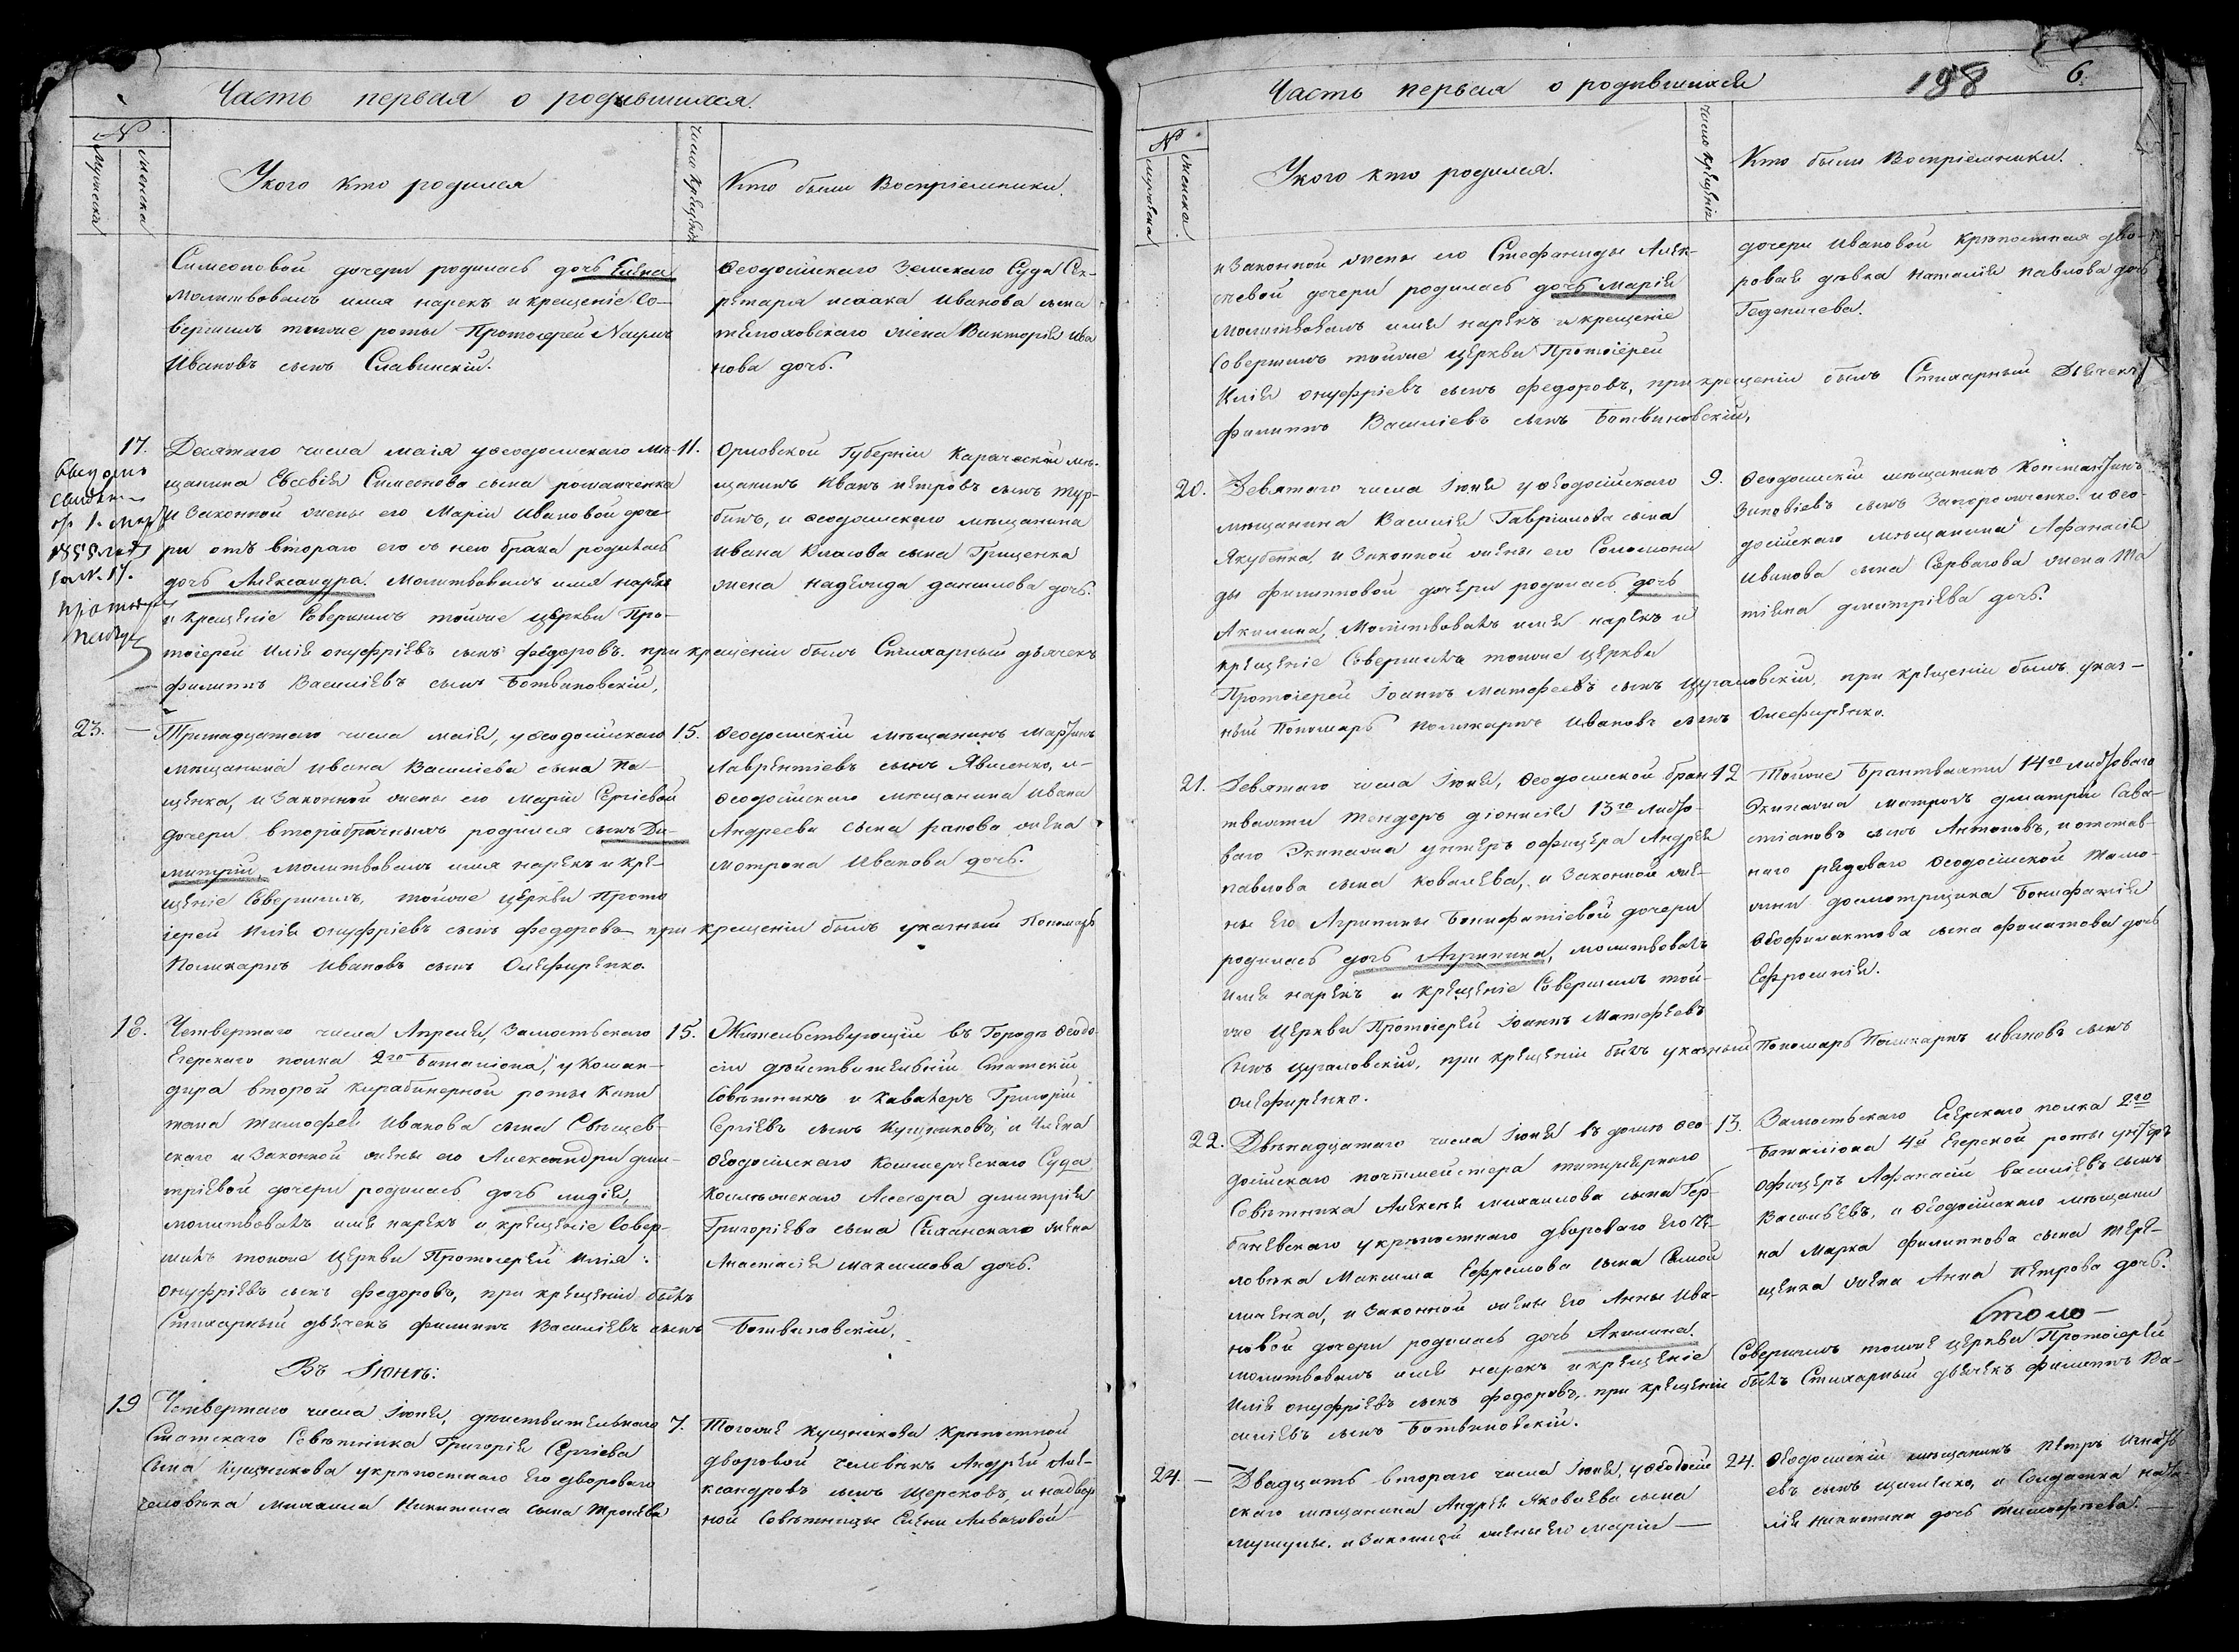 Часть первая о родившихся.
№
Мужеска
Женска
У кого кто родился
Число крещенія
Кто были Воспріемники.
Симеоновой дочери родилась дочь Елена
Молитвовалъ имя нарекъ и крещеніе Со-
вершилъ тоіже роты Протоіерей Наумъ
Ивановъ сынъ Славинскій.
Феодосійскаго Земскаго Суда Сек-
ретаря Исаака Иванова сына
жена Викторія Ива
нова дочь.
17.
Десятаго числа маія у Феодосійскаго Мѣ-
щанина Евсевія Симеонова сына романченка
и Законной жены его Маріи Ивановой доче-
ри отъ втораго его съ нею брака родилась
дочь Александра. Молитвовалъ имя нарекъ
и крещеніе Совершилъ тойже церкви Про-
тоіерей Илія онуфріевъ сынъ федоровъ. при крещеніи былъ Стихарный дьячекъ
филиппъ Василіевъ сынъ Ботвиновскій,
11.
Орловской Губерніи Карачевскій мѣ-
щанинъ Иванъ петровъ сынъ Тур-
бинъ, и Феодосійскаго мѣщанина
Ивана Власова сына Гриценка
жена надежда данилова дочь.
1855 года
за №. 17.
23.
Тринадцатаго числа маія, у Феодосійскаго
мѣщанина Ивана Василіева сына Па-
щенка, и Законной жены его Маріи Сергіевой
дочери второбрачныхъ родился сынъ Ди-
митрій, Молитвовалъ имя нарекъ и кре-
щеніе Совершилъ, тойже церкви Прото
іерей Илія Онуфріевъ сынъ федоровъ при крещеніи былъ указный Пономарь
Поликарпъ Ивановъ сынъ Олефиренко.
15.
Феодосійскій мѣщанинъ Мартинъ
Лаврентіевъ сынъ Явленко, и
Феодосійскаго мѣщанина Ивана
Андреева сына ракова жена
Мотрона Иванова дочь.
18.
Четвертаго числа Апреля, Замостьскаго
Егерскаго полка 2го баталіона, у Коман-
дира второй Карабинерной роты Капи
тана Тимофея Иванова сына Свѣщев-
скаго и Законной жены его Александры дми-
тріевой дочери родилась дочь лидія,
молитвовалъ имя нарекъ и крещеніе Совер-
шилъ тоіже Церкви Протоіерей Илія
онуфріевъ сынъ федоровъ, при крещеніи былъ
Стихарный дьячекъ филиппъ Василіевъ сынъ Ботвиновскій,
15.
Жительствующій въ Городѣ Феодо-
сіи дѣйствительній Статскій
Совѣтникъ и Кавалеръ Григорій
Сергіевъ сынъ Кушниковъ, и Члена
Феодосійскаго Коммерческаго Суда
Коллежскаго Асесора дмитрія
Григоріева сына жена
Анастасія максимова дочь.
Въ Іюнѣ:
19
Четвертаго числа Іюня, дѣиствительнаго
Статскаго Совѣтника Григорія Сергіева
сына Кушникова укрѣпостнаго Его двороваго
человѣка михаила Никитина сына Тронева
7.
Тогоже кушникова Крѣпостной
дворовой человѣкъ Андрей Але-
ксандровъ сынъ Щерековъ, и надвор
ной Совѣтницы Елены Ливачовой
Часть первая о родившихся
198
6.
№
Мужеска
Женска.
У кого кто родился.
Число Крещенія
Кто были Воспріемники.
и Законной жены его Стефаниды Алек-
сѣевой дочери родилась дочь марія
молитвовалъ имя нарекъ и крещеніе
Совершилъ тойже церкви Протоіерей
Илія онуфріевъ сынъ федоровъ, при крещеніи былъ Стихарный Дьячекъ
филиппъ Василіевъ сынъ Ботвиновскій,
дочери Ивановой Крѣпостная дво-
ровая дѣвка наталія павлова дочь
Геденичева.
20.
Девятаго числа Іюня у Феодосійскаго
мѣщанина Василія Гавріилова сына
Якубенка, и Законной жены его Соломони
ды филипповой дочери родилась дочь
Акилина, Молитвовалъ имя нарекъ и
крещеніе Совершилъ тоіже церкви
Протоіерей Іоаннъ матфеевъ сынъ Цугаловскій, при крещеніи былъ указ-
ный Пономарь Поликарпъ Ивановъ сынъ Олефиренко.
9.
Феодосійскій мѣщанинъ Константинъ
Зиновіевъ сынъ Запорожченко и Фео-
досійскаго мѣщанина Афанасія
Иванова сына жена Та
тіяна дмитріева дочь.
21.
Девятаго числа Іюня, Феодосійской бран-
твахты Тендоръ діонисія 13го ласто-
ваго Экипажа унтеръ офицера Андрея
павлова сына Ковалева, и Законной же-
ны Его Агрипины Бонифатіевой дочери
родилась дочь Агрипина, молитвовалъ
имя нарекъ и крещеніе Совершилъ той-
же Церкви Протоіерей Іоаннъ Матфеевъ
Сынъ Цугаловскій, при крещеніи былъ указный Пономарь Поликарпъ Ивановъ сынъ
Олефиренко.
12
Тойже Брантвахти 14го ластоваго
Экипажа матрозъ дмитрій Сава-
стіановъ сынъ Антоновъ, и отстав-
наго рядоваго Феодосійской Тамо-
жни досмотрщика Бонифатія
Феофилактова сына филатова дочь
Ефросинія.
22.
Двѣнадцатаго числа Іюня въ домѣ Фео-
досійскаго почтмейстера титулярнаго
Совѣтника Алексея михаилова сына Гор-
баневскаго укрѣпостнаго двороваго Его че-
ловѣка Максима Ефремова сына Самой
ленка, и Законной жены Его Анны Ива-
новой дочери родилась дочь Акилина.
молитвовалъ имя нарекъ и крещеніе Совершилъ тоійже церкви Протоіерей
Илія онуфріевъ сынъ федоровъ, при крещеніи былъ Стихарный дьячекъ филиппъ Ва-
силіевъ сынъ Ботвиновскій.
13.
Замостьскаго Егерскаго полка 2го
баталіона 4й Егерской роты унтеръ
офицеръ Афанасій василіевъ сынъ
Васильевъ, и Феодосійскаго мѣщани
на Марка филиппова сына Тере-
щенка жена Анна петрова дочь.
24.
Двадцать втораго числа Іюня, у Феодосій
скаго мѣщанина Андрея Яковлева сына
и Законной жены его маріи
24.
Феодосійскій мѣщанинъ Петръ Игнать
евъ сынъ и Солдатка ната-
лія никитина дочь тимофѣева.